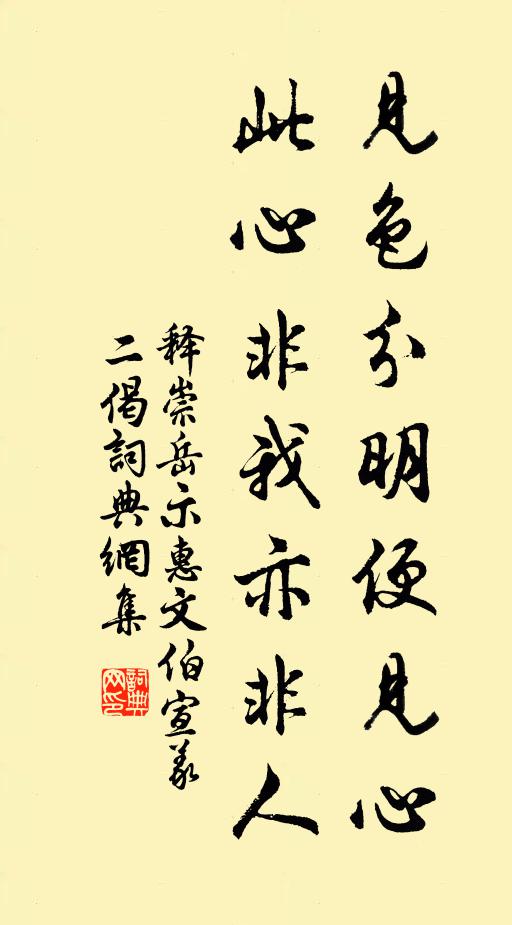 見色分明便見心
此心非我亦非人
释崇岳示惠文伯宣義
二偈詞典網集
詞典
网印